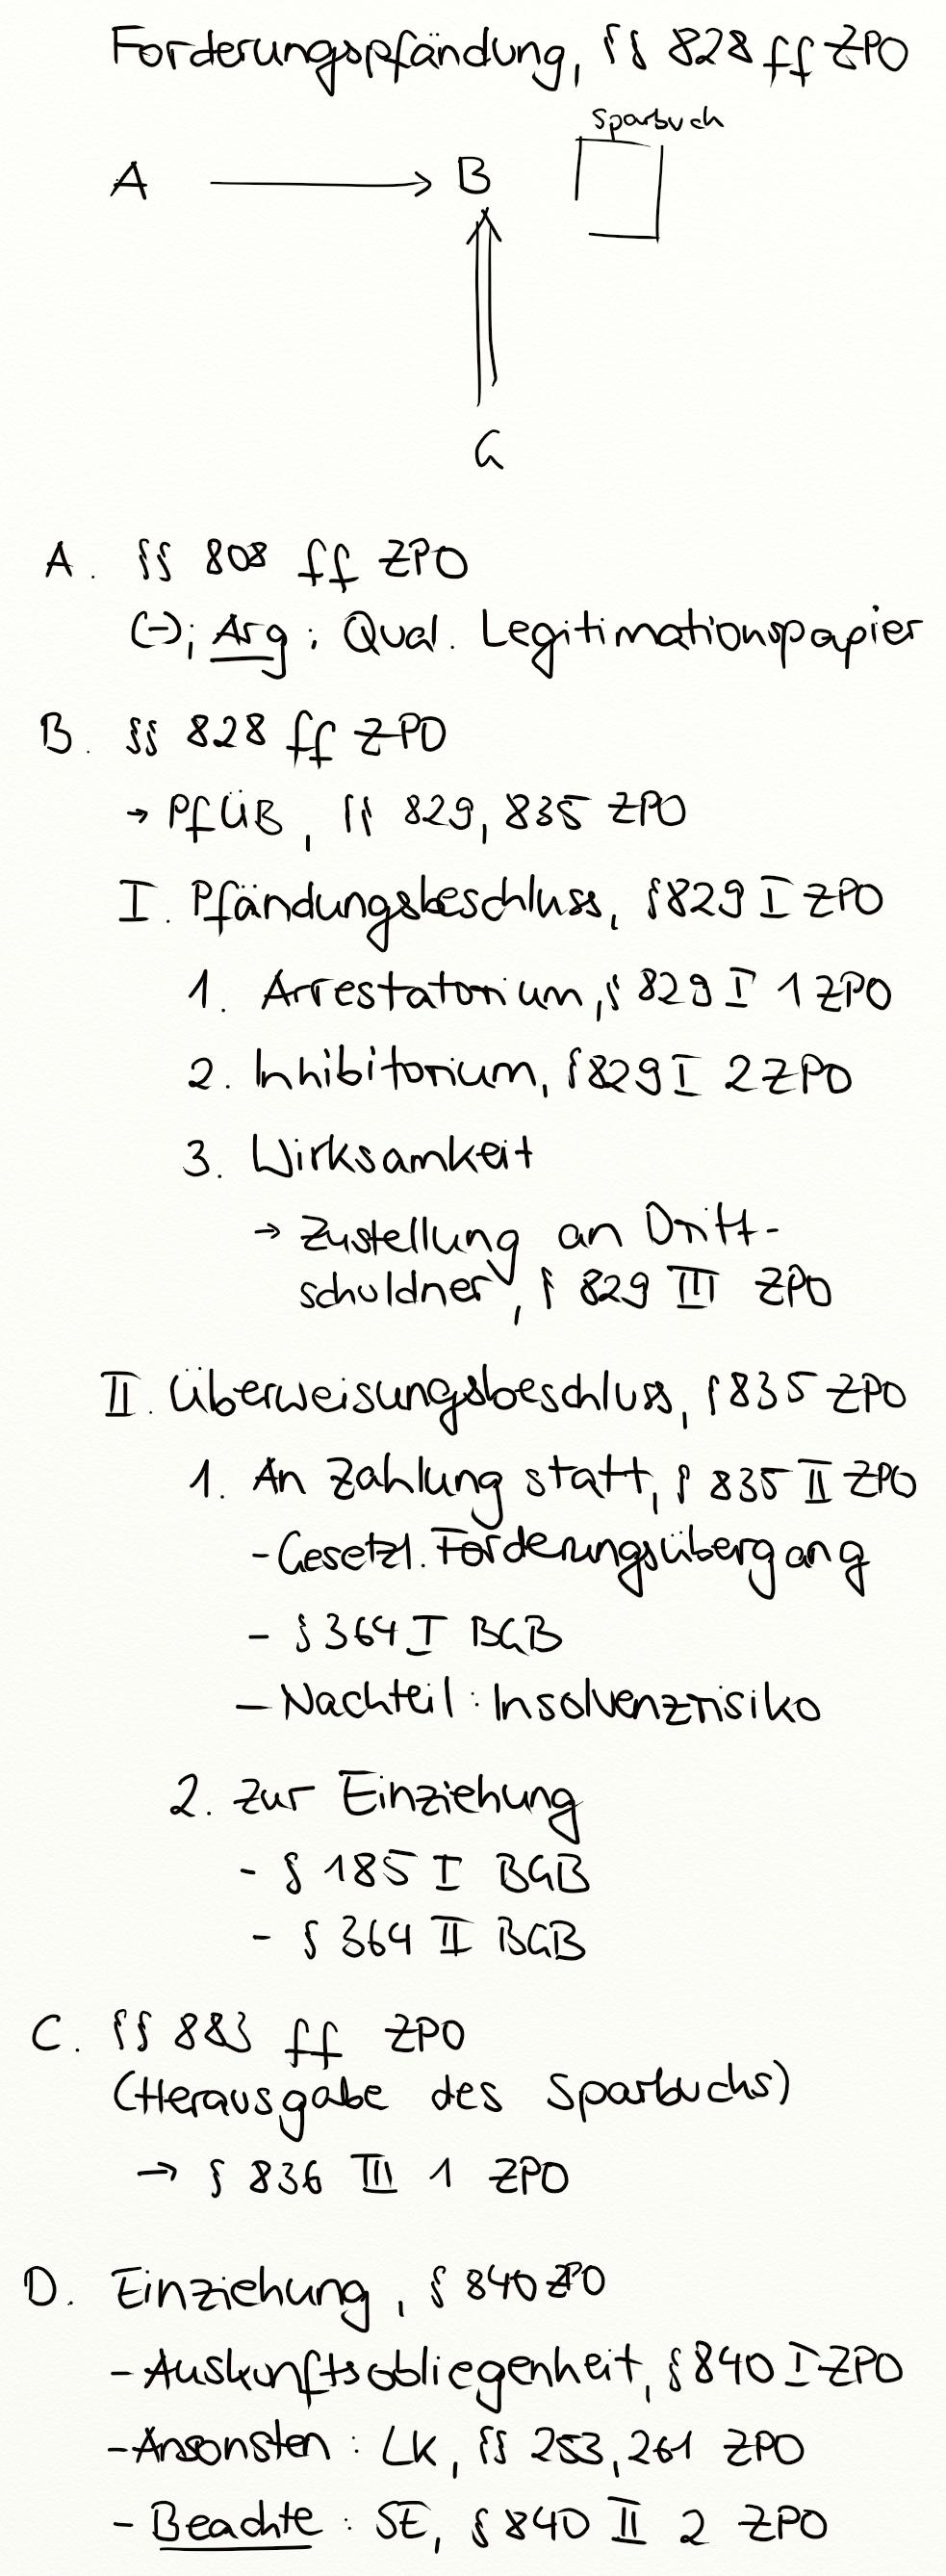 Forderungspfändung, §§ 828 ff ZPO
Sparbuch
A → B
G
A. §§ 808 ff ZPO
(-); Arg: Qual. Legitimationspapier
B. §§ 828 ff ZPO
→ PfÜB, §§ 829, 835 ZPO
I. Pfändungsbeschluss, § 829 I ZPO
1. Arrestatorium, § 829 I 1 ZPO
2. Inhibitorium, § 829 I 2 ZPO
3. Wirksamkeit
→ Zustellung an Dritt-
schuldner, § 829 III ZPO
II. Überweisungsbeschluss, § 835 ZPO
1. An Zahlung statt, § 835 II ZPO
- Gesetzl. Forderungsübergang
- § 364 I BGB
- Nachteil: Insolvenzrisiko
2. Zur Einziehung
- § 185 I BGB
- § 364 II BGB
C. §§ 883 ff ZPO
(Herausgabe des Sparbuchs)
→ § 836 III 1 ZPO
D. Einziehung, § 840 ZPO
- Auskunftsobliegenheit, § 840 I ZPO
- Ansonsten: LK, §§ 253, 261 ZPO
- Beachte: SE, § 840 II 2 ZPO